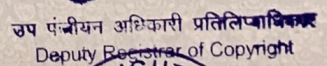 उप पंजीयन अधिकारी प्रतिलिप्याधिकार
Deputy Registrar of Copyright